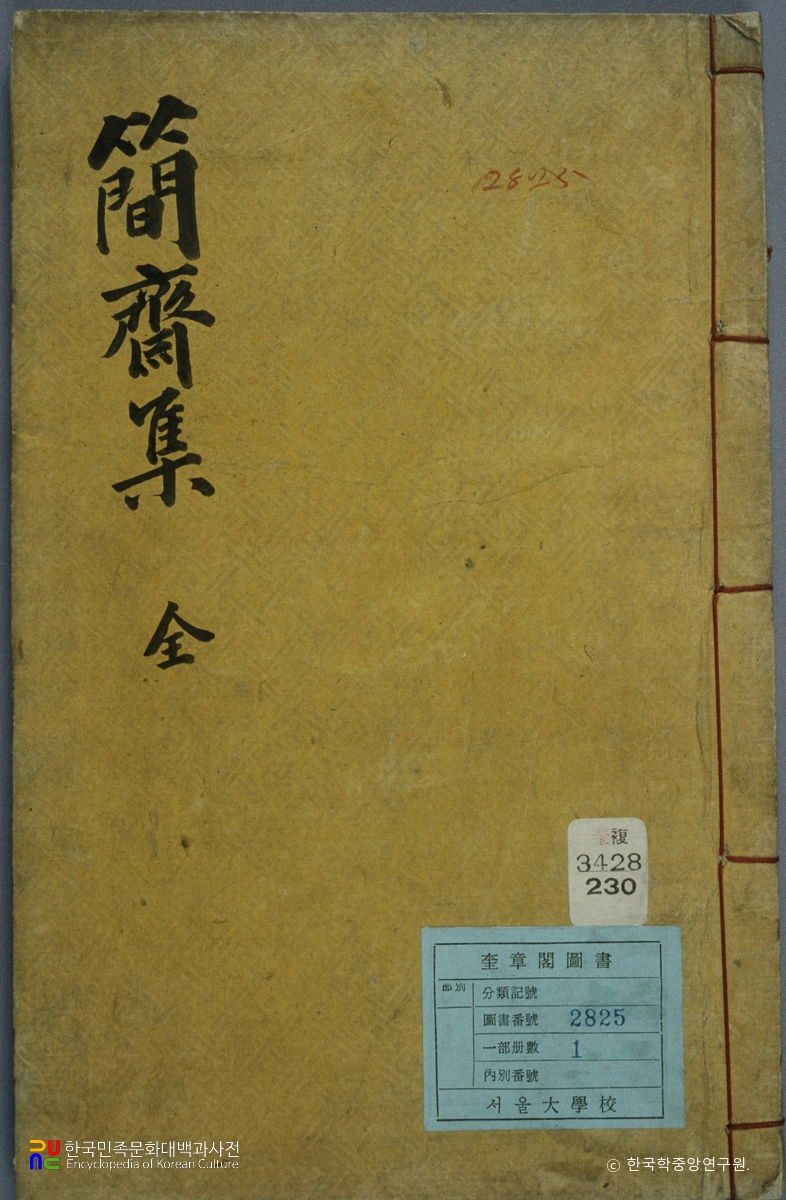 簡齋集
全
2825
奎複
3428
230
奎章閣圖書
部別
分類記號
圖書番號 2825
一部册數 1
內別番號
서울大學校
한국민족문화대백과사전
Encyclopedia of Korean Culture
ⓒ 한국학중앙연구원.